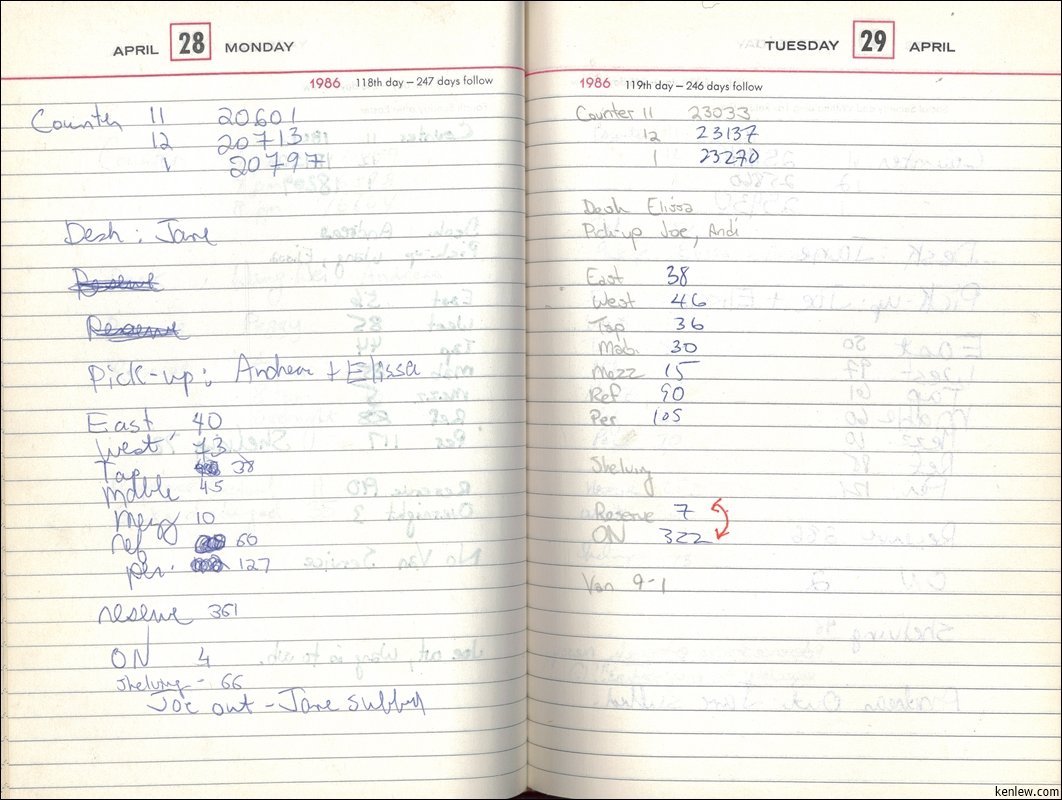 APRIL 28 MONDAY
1986 118th day — 247 days follow
Counter 11 20601
12 20713
1 20797
Desk : Jane
Reserve
Reserve
Pick-up: Andrew + Elissa
East 40
West 73
Tap 38
Mdble 45
Mezz 10
ref 60
per. 127
reserve 361
ON 4
Shelving - 66
Joe out - Jane subbed
TUESDAY 29 APRIL
1986 119th day — 246 days follow
Counter 11 23033
12 23137
1 23270
Desk Elissa
Pick-up Joe, Andi
East 38
West 46
Tap 36
Mab. 30
Mezz 15
Ref 90
Per 105
Shelving
Reserve 7
ON 322
Van 9-1
kenlew.com